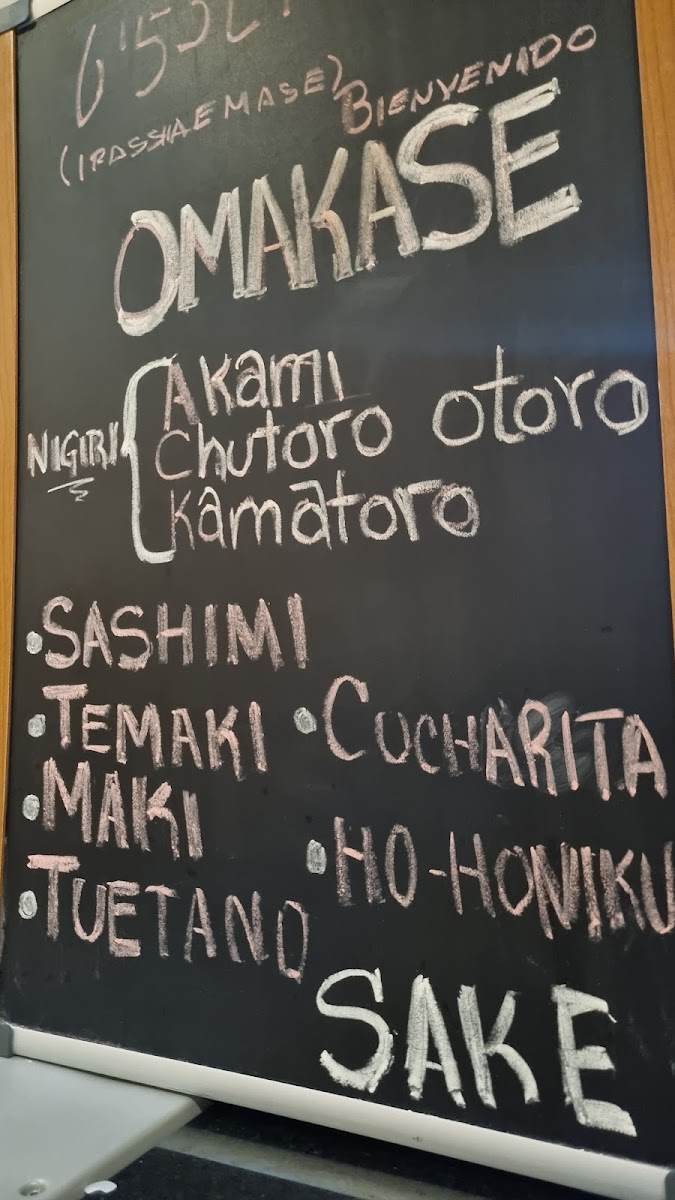 (IRASSHAEMASE) BIENVENIDO
OMAKASE
NIGIRI { Akami
Chutoro otoro
Kamatoro
• SASHIMI
• TEMAKI • CUCHARITA
• MAKI
• TUETANO • HO-HONIKU
SAKE